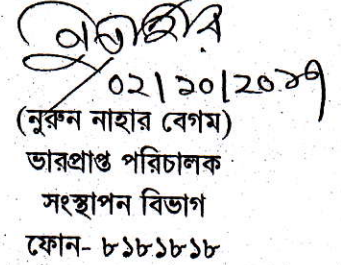 ০২/১০/২০১৭
(নুরুন নাহার বেগম)
ভারপ্রাপ্ত পরিচালক
সংস্থাপন বিভাগ
ফোন- ৮১৮১৮১৮